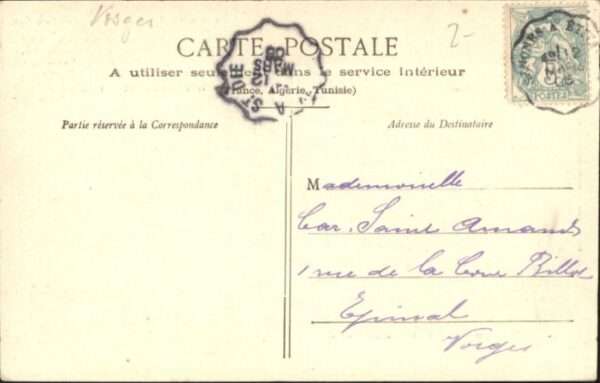 Vosges
2-
CARTE POSTALE
A utiliser seulement dans le service Intérieur
(France, Algérie, Tunisie)
Partie réservée à la Correspondance
Adresse du Destinataire
Mademoiselle
Car. Saint Amand
1 rue de la Cour Billot
Epinal
Vosges
12
MARS
POSTES